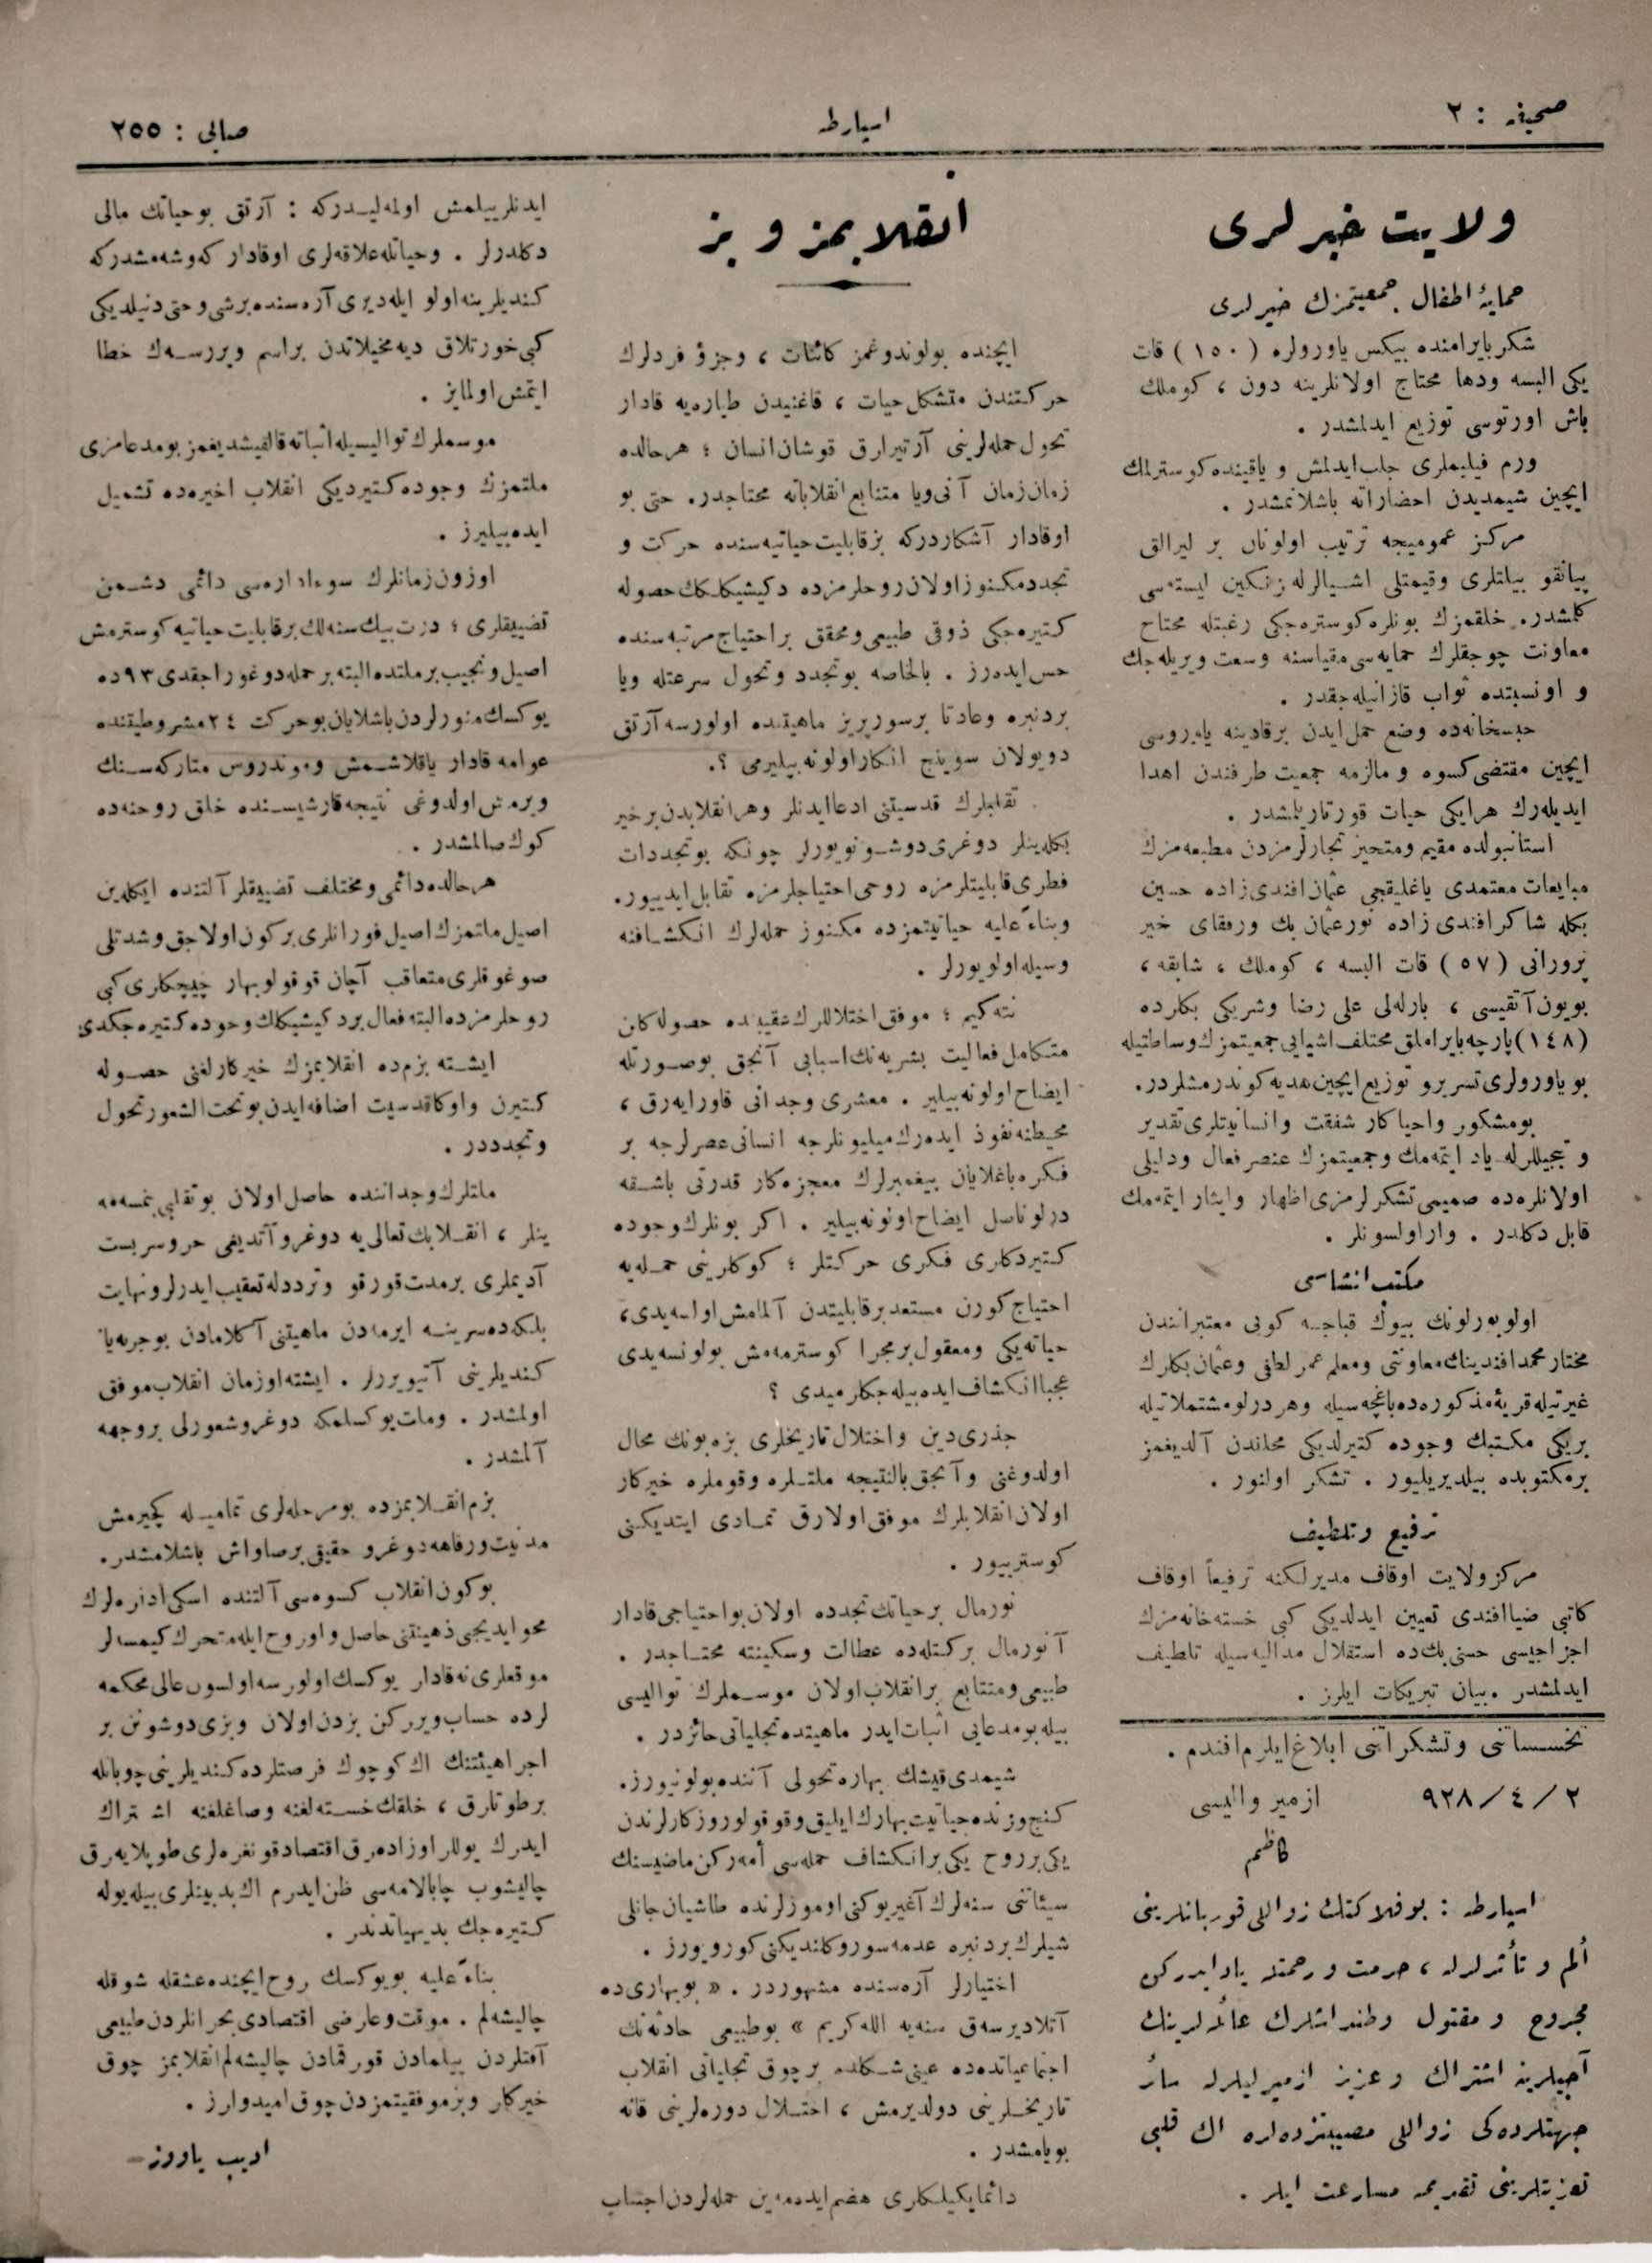 صحيفه : ٢
اسپارطه
صايى : ٢٥٥
ولايت خبرلرى
حمايهٔ اطفال جمعيتمزك خبرلرى
شكر بايرامنده بيكس ياورولره (١٥٠) قات
يكى البسه ودها محتاج اولانلرينه دون ، كوملك
باش اورتوسى توزيع ايدلمشدر .
ورم فيليملرى جلب ايدلمش و ياقينده كوسترلمك
ايچين شيمديدن احضاراته باشلانمشدر .
مركز عموميجه ترتيب اولونان بر ليرالق
پيانقو بيلتلرى وقيمتلى اشيالرله زنكين ليسته سى
كلمشدر. خلقمزك بونلره كوستره جكى رغبتله محتاج
معاونت چوجقلرك حمايه سى مقياسنه وسعت ويريله جك
و اونسبتده ثواب قازانيله جقدر .
حبسخانه ده وضع حمل ايدن برقادينه ياوروسى
ايچين مقتضى كسوه و مالزمه جمعيت طرفندن اهدا
ايديله رك هرايكى حيات قورتاريلمشدر .
استانبولده مقيم ومتحيز تجارلرمزدن مطبعه مزك
مبايعات معتمدى ياغليقجى عثمان افندى زاده حسين
بكله شاكر افندى زاده نورعثمان بك ورفقاى خير
پرورانى (٥٧) قات البسه ، كوملك ، شابقه ،
بويون آتقيسى ، بارله لى على رضا وشريكى بكلرده
(١٤٨) پارچه بايراملق مختلف اشيايى جمعيتمزك وساطتيله
بو ياورولرى تسرير و توزيع ايچين هديه كوندرمشلردر.
بو مشكور واحيا كار شفقت وانسانيتلرى تقدير
و تجيللرله ياد ايتمه مك وجمعيتمزك عنصر فعال ودليلى
اولانلره ده صميمى تشكرلرمزى اظهار وايثار ايتمه مك
قابل دكلدر . وار اولسونلر .
مكتب انشاسى
اولوبورلونك بيوك قباجه كويى معتبرانندن
مختار محمد افندينك معاونتى ومعلم عمر لطفى وعثمان بكلرك
غيرتيله قريهٔ مذكوره ده باغچه سيله وهر درلو مشتملاتيله
بر يكى مكتبك وجوده كتيرلديكى محلندن آلديغمز
بر مكتوبده بيلديريليور . تشكر اولنور .
ترفيع وتلطيف
مركز ولايت اوقاف مديرلكنه ترفيعاً اوقاف
كاتبى ضيا افندى تعيين ايدلديكى كبى خسته خانه مزك
اجزاجيسى حسنى بك ده استقلال مداليه سيله تلطيف
ايدلمشدر . بيان تبريكات ايلرز .
تحسساتى وتشكراتمى ابلاغ ايلرم افندم .
٢ / ٤ / ٩٢٨ ازمير واليسى
كاظم
اسپارطه : بو فلاكتك زواللى قوربانلرينى
ألم و تأثرلرله ، حرمت و رحمتله ياد ايدركن
مجروح و مقتول وطنداشلرك عائله لرينك
آجيلرينه اشتراك و عزيز ازميرليلرله سائر
جهتلرده كى زواللى مصيبتزده لره اك قلبى
تعزيتلرينى تقديمه مسارعت ايلر .
انقلابمز و بز
ايچنده بولوندوغمز كائنات ، وجزؤ فردلرك
حركتندن متشكل حيات ، قاغنيدن طياره يه قادار
تحول حمله لرينى آرتيرارق قوشان انسان ؛ هر حالده
زمان زمان آنى ويا متتابع انقلاباته محتاجدر. حتى بو
اوقادار آشكاردركه بز قابليت حياتيه سنده حركت و
تجدد مكنوز اولان روحلرمزده دكيشيكلكك حصوله
كتيره جكى ذوقى طبيعى ومحقق بر احتياج مرتبه سنده
حس ايده رز . بالخاصه بو تجدد وتحول سرعتله ويا
بردنبره وعادتا بر سورپريز ماهيتنده اولورسه آرتق
دويولان سوينج انكار اولونه بيليرمى ؟.
تقلبلرك قدسيتنى ادعا ايدنلر وهر انقلابدن بر خير
بكله ينلر دوغرى دوشونويورلر چونكه بو تجددات
فطرى قابليتلرمزه روحى احتياجلرمزه تقابل ايدييور.
وبناءً عليه حياتيتمزده مكنوز حمله لرك انكشافنه
وسيله اولويورلر .
نته كيم ؛ موفق اختلاللرك عقبنده حصوله كلن
متكامل فعاليت بشريه نك اسبابى آنجق بو صورتله
ايضاح اولونه بيلير . معشرى وجدانى قاورايه رق ،
محيطنه نفوذ ايده رك ميليونلرجه انسانى عصرلرجه بر
فكره باغلايان پيغمبرلرك معجزه كار قدرتى باشقه
درلو ناصل ايضاح اولونه بيلير . اكر بونلرك وجوده
كتيردكلرى فكرى حركتلر ؛ كوكلرينى حمله يه
احتياج كورن مستعد بر قابليتدن آلمامش اولسه يدى،
حياته يكى ومعقول بر مجرا كوسترمه مش بولونسه يدى
عجبا انكشاف ايده بيله جكلر ميدى ؟
جذرى دين واختلال تاريخلرى بزه بونك محال
اولدوغنى وآنجق بالنتيجه ملتلره وقوملره خيركار
اولان انقلابلرك موفق اولارق تمادى ايتديكنى
كوسترييور .
نورمال بر حياتك تجدده اولان بو احتياجى قادار
آنورمال بر كتله ده عطالت وسكينته محتاجدر .
طبيعى ومتتابع بر انقلاب اولان موسملرك تواليسى
بيله بو مدعايى اثبات ايدر ماهيتده تجلياتى حائزدر .
شيمدى قيشك بهاره تحولى آننده بولونيورز.
كنج وزنده حياتيت بهارك ايليق وقوقولو روزكارلرندن
يكى بر روح يكى بر انكشاف حمله سى أمه ركن ماضيسنك
سيئاتنى سنه لرك آغير يوكنى اوموزلرنده طاشيان جانلى
شيلرك بردنبره عدمه سوروكلنديكنى كورويورز .
اختيارلر آره سنده مشهوردر . « بو بهارى ده
آتلاديرسه ق سنه يه الله كريم » بو طبيعى حادثه نك
اجتماعياتده ده عينى شكلده بر چوق تجلياتى انقلاب
تاريخلرينى دولديرمش ، اختلال دوره لرينى قانه
بويامشدر .
دائما يكيلكلرى هضم ايده مه ين حمله لردن اجتناب
ايدنلر بيلمش اولمه ليدركه : آرتق بو حياتك مالى
دكلدرلر . وحياتله علاقه لرى اوقادار كه وشه مشدركه
كنديلرينه اولو ايله ديرى آره سنده برشى وحتى دنيلديكى
كبى خورتلاق ديه مخيلاتدن بر اسم ويررسه ك خطا
ايتمش اولمايز .
موسملرك تواليسيله اثباته قالقيشديغمز بو مدعامزى
ملتمزك وجوده كتيرديكى انقلاب اخيره ده تشميل
ايده بيليرز .
اوزون زمانلرك سوء اداره سى دائمى دشمن
تضييقلرى ؛ درت بيك سنه لك بر قابليت حياتيه كوسترمش
اصيل ونجيب بر ملتده البته بر حمله دوغوراجقدى ٩٣ ده
يوكسك منورلردن باشلايان بو حركت ٢٤ مشروطيتنده
عوامه قادار ياقلاشمش و موندروس متاركه سنك
ويرمش اولدوغى نتيجه قارشيسنده خلق روحنه ده
كوك صالمشدر .
هر حالده دائمى ومختلف تضييقلر آلتنده ايكله ين
اصيل ملتمزك اصيل فورانلرى بر كون اولاجق وشدتلى
صوغوقلرى متعاقب آچان قوقولو بهار چيچكلرى كبى
روحلرمزده البته فعال بر دكيشيكلك وجوده كتيره جكدى
ايشته بزم ده انقلابمزك خيركارلغنى حصوله
كتيرن واوكا قدسيت اضافه ايدن بو تحت الشعور تحول
وتجدددر .
ملتلرك وجداننده حاصل اولان بو تقلبى بنمسه مه
ينلر ، انقلابك تعالى يه دوغرو آتديغى حر وسربست
آديملرى بر مدت قورقو وتردد له تعقيب ايدرلر و نهايت
بلكه ده سرينه ايرمه دن ماهيتنى آكلامادن بو جريه يا
كنديلرينى آتيويررلر . ايشته او زمان انقلاب موفق
اولمشدر . وملت يوكسلمكه دوغرو شعورلى بر وجهه
آلمشدر .
بزم انقلابمزده بو مرحله لرى تماميله كچيرمش
مدنيت ورفاهه دوغرو حقيقى بر صاواش باشلامشدر.
بو كون انقلاب كسوه سى آلتنده اسكى اداره لرك
محو ايديجى ذهنيتنى حاصل و او روح ايله متحرك كيمسه لر
موقعلرى نه قادار يوكسك اولورسه اولسون عالى محكمه
لرده حساب ويرركن بزدن اولان وبزى دوشونن بر
اجرا هيئتنك اك كوچوك فرصتلرده كنديلرينى چوبانله
بر طوتارق ، خلقك خسته لغنه وصاغلغنه اشتراك
ايدرك يوللر اوزاده رق اقتصاد قونغره لرى طوپلايه رق
چاليشوب چابالامه سى ظن ايدرم اك بدبينلرى بيله يوله
كتيره جك بديهياتدندر .
بناءً عليه بو يوكسك روح ايچنده عشقله شوقله
چاليشه لم . موقت وعارضى اقتصادى بحرانلردن طبيعى
آفتلردن ييلمادن قورقمادن چاليشه لم انقلابمز چوق
خيركار وبز موفقيتمزدن چوق اميدوارز .
اديب ياووز